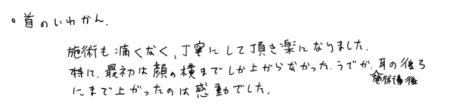 。首のいわかん.
施術も痛くなく、丁寧にして頂き楽になりました.
特に、最初は顔の横までしか上がらなかった、うでが、耳の後ろ
施術後
にまで上がったのは感動でした.